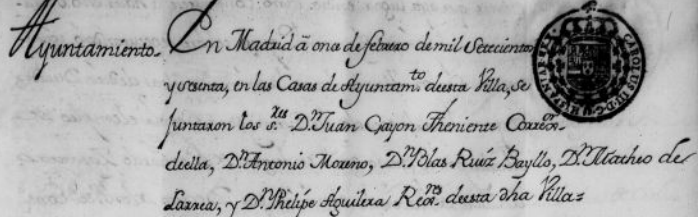 Ayuntamiento. En Madrid á onze de febrero de mil Setecientos
y sesenta, en las Casas de Ayuntam.to de esta Villa, se
juntaron los s.res D.n Juan Gayon Theniente Correg.or
de ella, D.n Antonio Moreno, D.n Blas Ruiz Bayllo, D.n Matheo de
Larrea, y D.n Phelipe Aguilera Reg.res de esta dha Villa=
CAROLUS III D G HISPANIAR REX